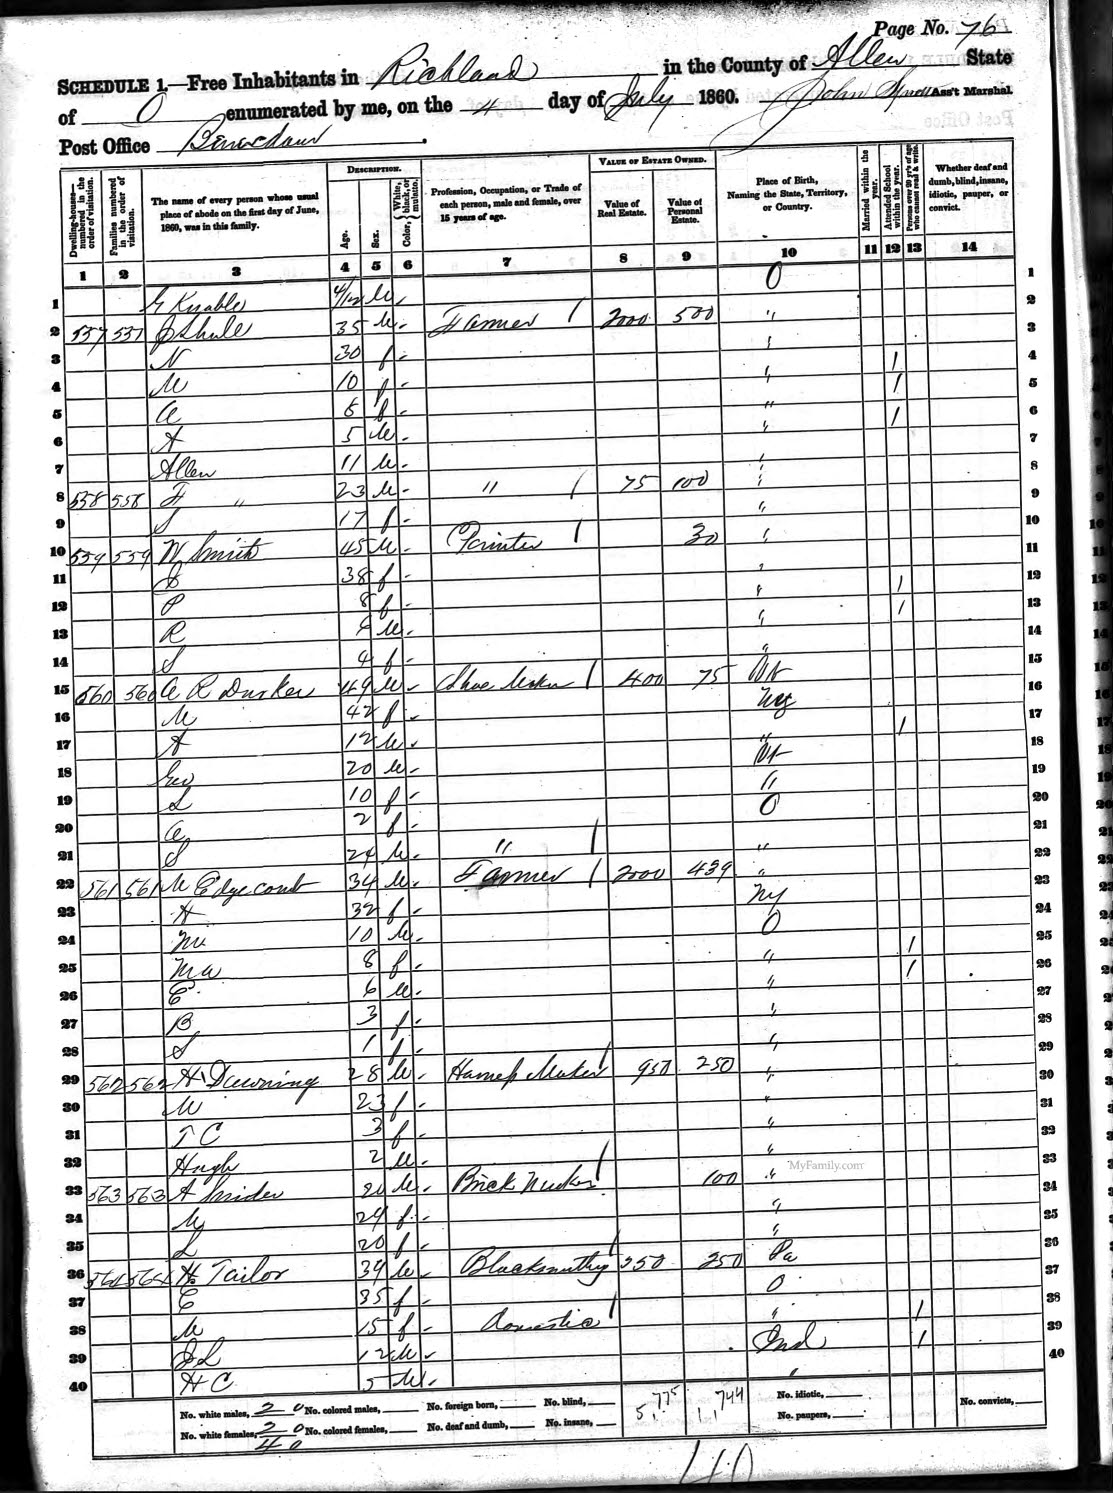 Page No. 76
SCHEDULE 1.—Free Inhabitants in Richland in the County of Allen State
of O enumerated by me, on the 4 day of July 1860. John Ass't Marshal.
Post Office
Dwelling-houses—numbered in the order of visitation.
Families numbered in the order of visitation.
The name of every person whose usual place of abode on the first day of June, 1860, was in this family.
DESCRIPTION.
Age.
Sex.
Color, { White, black, or mulatto.
Profession, Occupation, or Trade of each person, male and female, over 15 years of age.
VALUE OF ESTATE OWNED.
Value of Real Estate.
Value of Personal Estate.
Place of Birth, Naming the State, Territory, or Country.
Married within the year.
Attended School within the year.
Persons over 20 y'rs of age who cannot read & write.
Whether deaf and dumb, blind, insane, idiotic, pauper, or convict.
1 2 3 4 5 6 7 8 9 10 11 12 13 14
1 G Knable 4/12 M - O 1
2 557 557 Shule 35 M - Farmer / 2000 500 " 2
3 N 30 f - " 3
4 M 10 f - " / 4
5 A 8 f - " / 5
6 A 5 M - " / 6
7 Allen 11 M - " 7
8 558 558 F " 23 M - " / 75 100 " 8
9 S 17 f - " 9
10 559 559 W Smith 45 M - / 30 " 10
11 38 f - " 11
12 P 8 f - " / 12
13 R 6 M - " / 13
14 S 4 f - " 14
15 560 560 A R Dunker 49 M - Shoe Maker / 400 75 Vt 15
16 M 42 f - NY 16
17 A 12 M - " / 17
18 Geo 20 M - Vt 18
19 L 10 f - " 19
20 A 2 f - O 20
21 S 24 M - " / " 21
22 561 561 M Edgecomb 34 M - Farmer / 2000 439 " 22
23 H 32 f - NY 23
24 M 10 M - O 24
25 Ma 8 f - " / 25
26 E 6 M - " / 26
27 B 3 f - " 27
28 S 1 f - " 28
29 562 562 H Downing 28 M - Harness Maker / 950 250 " 29
30 M 23 f - " 30
31 T C 3 f - " 31
32 Hugh 2 M - " 32
33 563 563 A Snider M - Brick Maker / 100 " 33
34 M 24 f - " 34
35 L 20 f - " 35
36 564 564 H Tailor 34 M - Blacksmithy / 350 250 Pa 36
37 E 35 f - O 37
38 M 15 f - Domestic / " / 38
39 L 12 M - Ind / 39
40 H C 5 M - " 40
No. white males, 20 No. colored males, No. foreign born, No. blind, 5,775 1,744 No. idiotic, No. convicts,
No. white females, 20 No. colored females, No. deaf and dumb, No. insane, No. paupers,
40
40
MyFamily.com